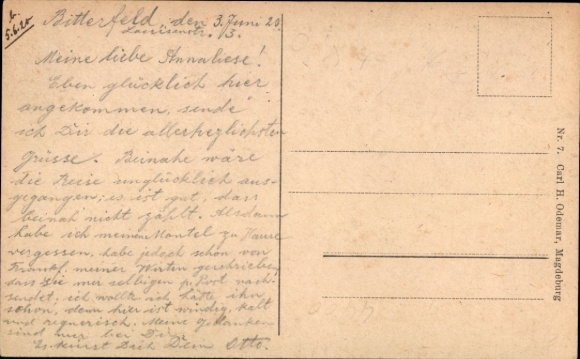 b. 5.6.20
Bitterfeld, den 3. Juni 20.
Luisenstr. 3.
Meine liebe Annaliese!
Eben glücklich hier
angekommen, sende
ich Dir die allerherzlichsten
Grüsse. Beinahe wäre
die Reise unglücklich aus-
gegangen; es ist gut, dass
beinah nicht zählt. Alsdann
habe ich meinen Mantel zu Hause
vergessen, habe jedoch schon von
Frankf. meiner Wirtin geschrieben,
dass sie mir selbigen p. Post nach-
sendet, ich wollte ich hätte ihn
schon, denn hier ist windig, kalt
und regnerisch. Meine Gedanken
sind nur bei Dir.
Es küsst Dich Dein Otto.
Nr. 7. Carl H. Odemar, Magdeburg